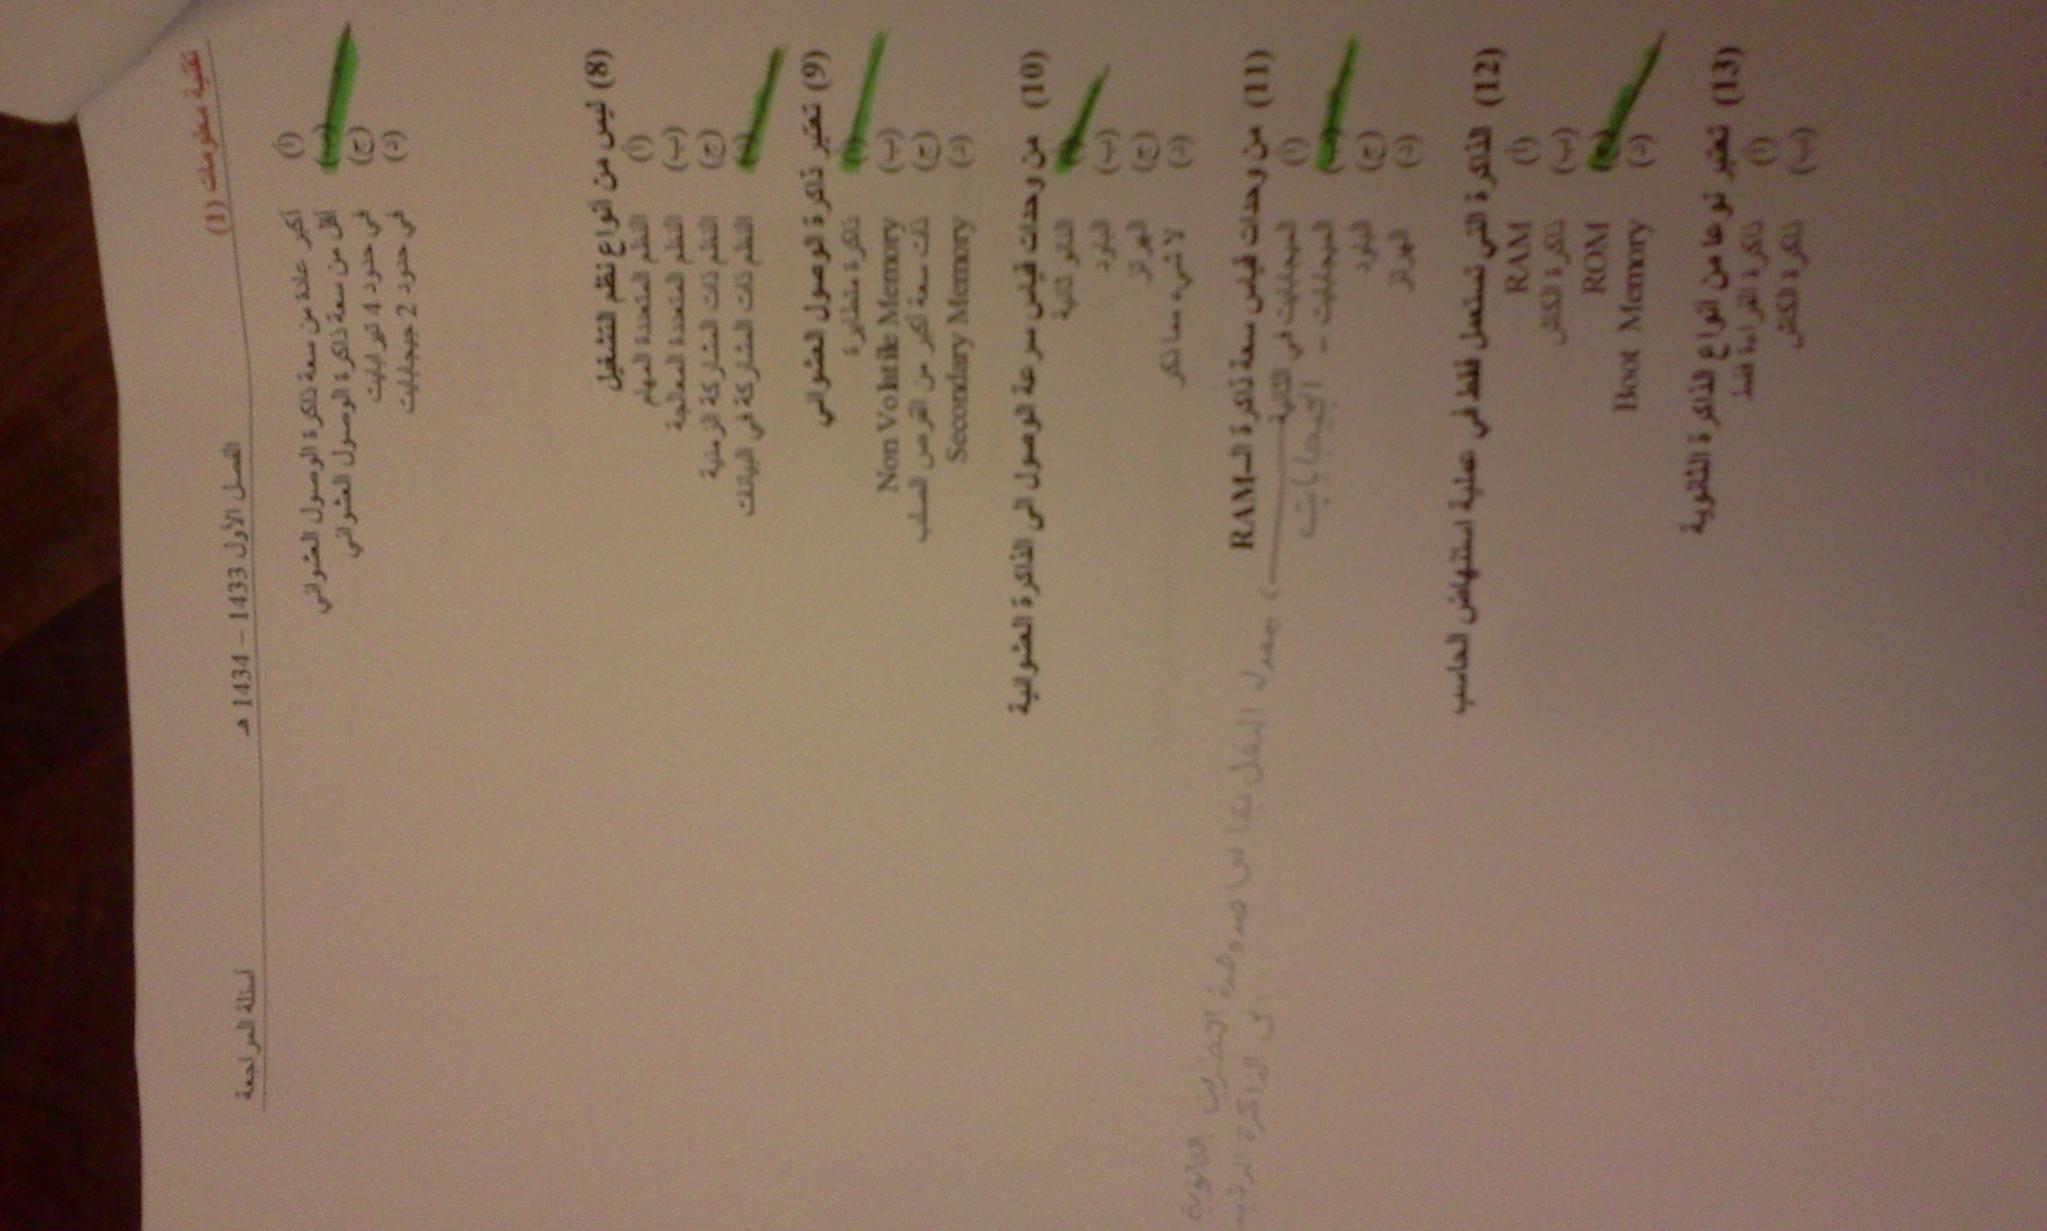 تقنية معلومات (1)
الفصل الأول 1433 – 1434 هـ
أسئلة المراجعة
(أ) أكبر عادة من سعة ذاكرة الوصول العشوائي
أقل من سعة ذاكرة الوصول العشوائي
(ج) في حدود 4 تيرابايت
(د) في حدود 2 جيجابايت
(8) ليس من أنواع نظم التشغيل
(أ) النظم المتعددة المهام
(ب) النظم المتعددة المعالجة
(ج) النظم ذات المشاركة الزمنية
النظم ذات المشاركة في البيانات
(9) تعتبر ذاكرة الوصول العشوائي
ذاكرة متطايرة
(ب) Non Volatile Memory
(ج) ذات سعة أكبر من القرص الصلب
(د) Secondary Memory
(10) من وحدات قياس سرعة الوصول الى الذاكرة العشوائية
النانو ثانية
(ب) الباوند
(ج) الهرتز
(د) لا شيء مما ذكر
(11) من وحدات قياس سعة ذاكرة الـ RAM
(أ) الميجابايت في الثانية
معدل النقل بقاس من وحدة التخزين الثانوية
إلى الذاكرة الرئيسية
الميجابايت - الجيجابايت
(ج) الباوند
(د) الهرتز
(12) الذاكرة التي تستعمل فقط في عملية استنهاض الحاسب
(أ) RAM
(ب) ذاكرة الكاش
(ج) ROM
(د) Boot Memory
(13) تعتبر نوعا من أنواع الذاكرة الثانوية
(أ) ذاكرة القراءة فقط
(ب) ذاكرة الكاش